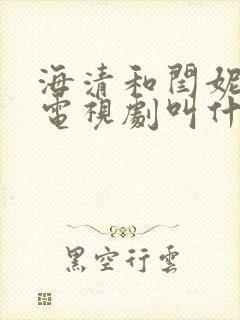 海清和閆妮
電視劇叫什
黑空行雲